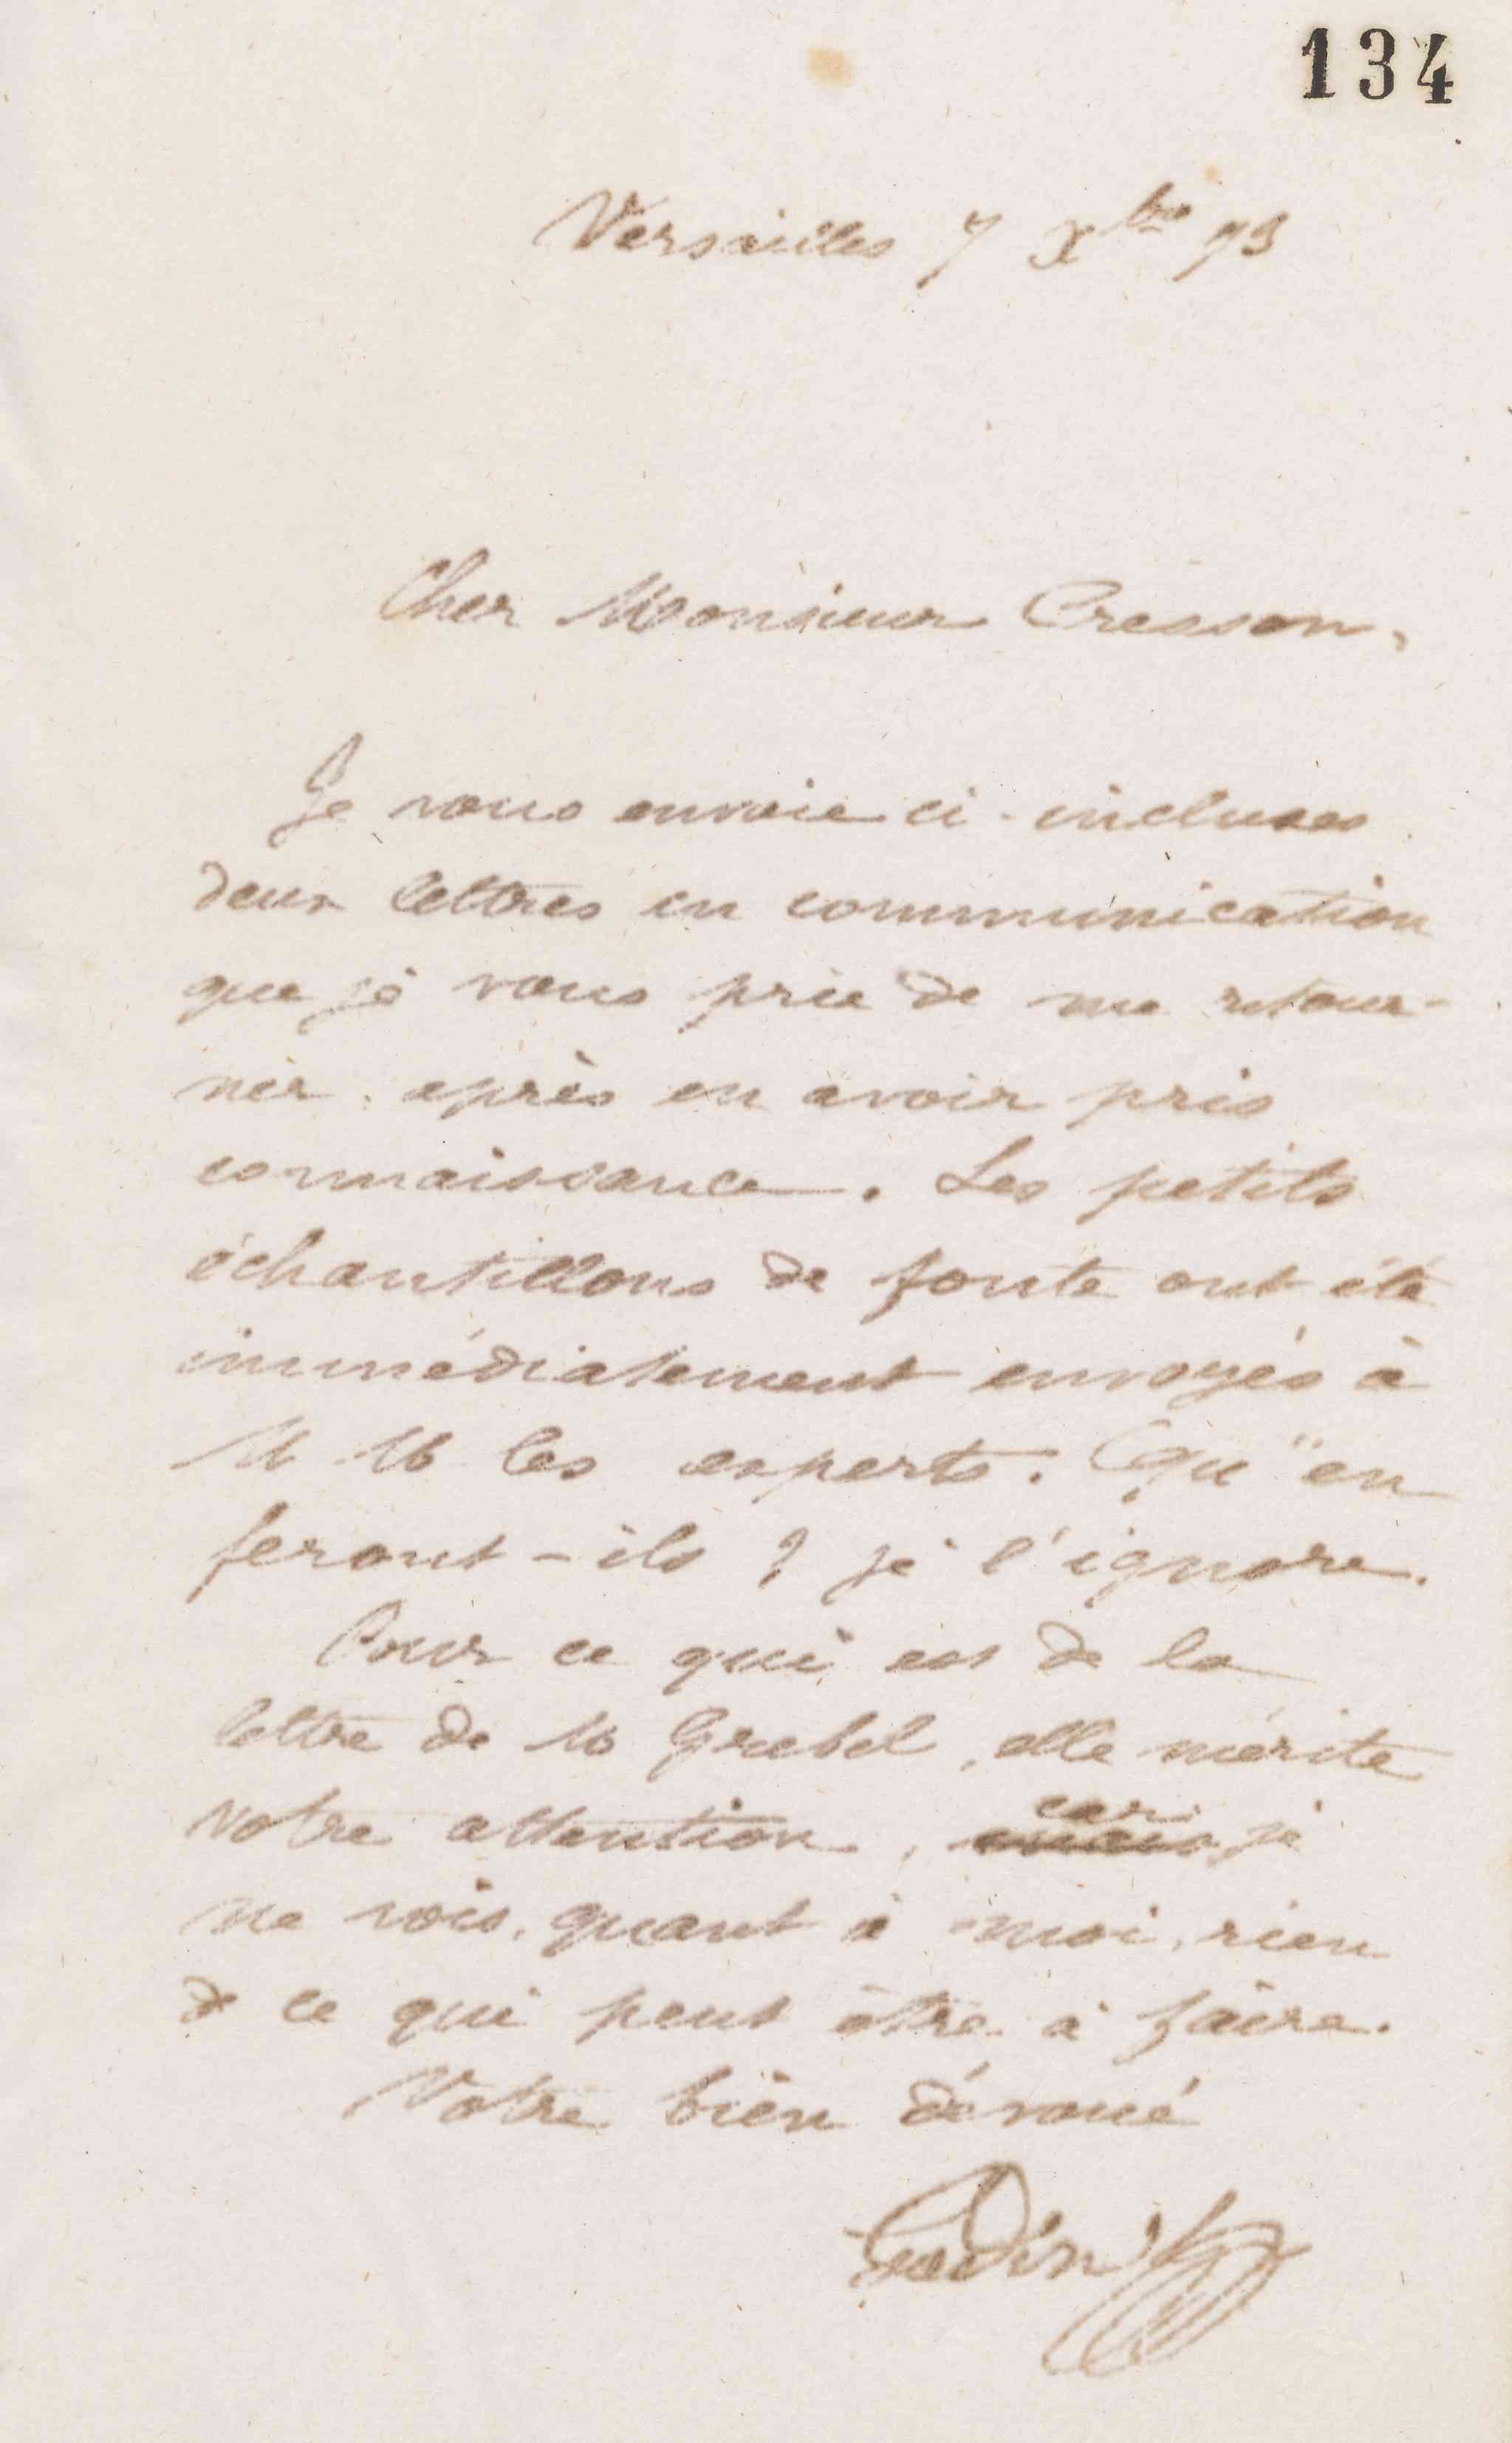 134
Versailles 7 Xbre 73
Cher Monsieur Cresson,
Je vous envoie ci-incluses
deux lettres en communication
que je vous prie de me retour-
ner, après en avoir pris
connaissance. Les petits
échantillons de fonte ont été
immédiatement envoyés à
MM les experts. Qu'en
feront-ils ? je l'ignore.
Pour ce qui est de la
lettre de M Grebel, elle mérite
votre attention, car
mais je
ne vois, quant à moi, rien
de ce qui peut être à faire.
Votre bien dévoué
Godin